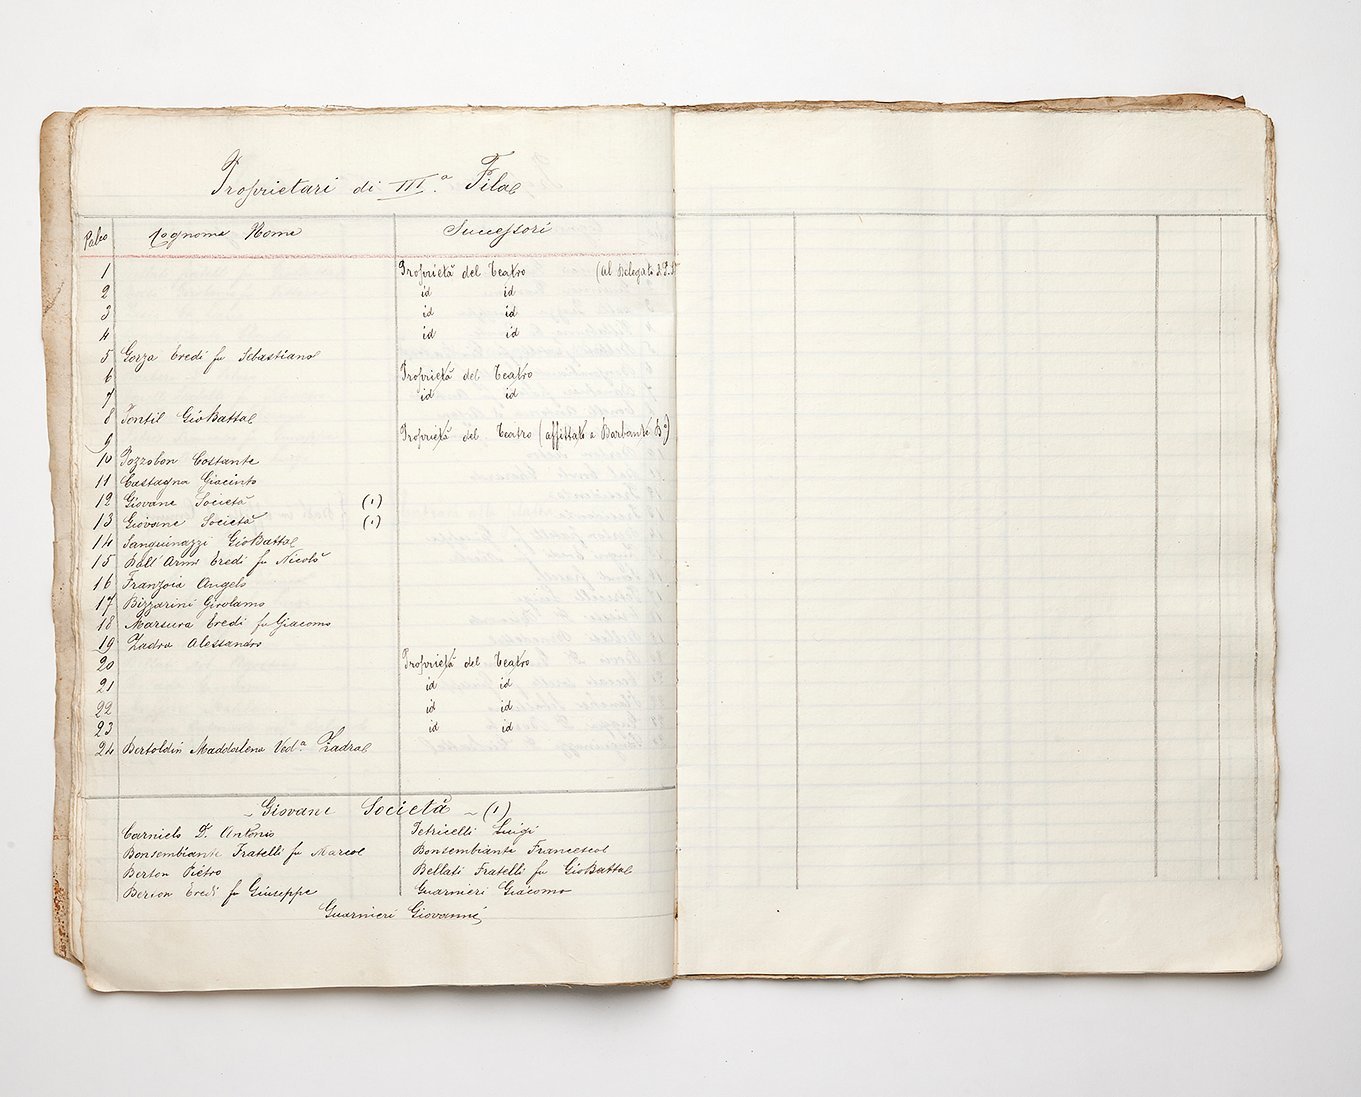 Proprietari di III.ª Fila
Palco Cognome Nome Successori
1 Proprietà del Teatro (al Delegato di P.S.
2 id id
3 id id
4 id id
5 Gorza Eredi fu Sebastiano
6 Proprietà del Teatro
7 id id
8 Tontil Gio Batta
9 Proprietà del Teatro (affittato a Barbante
10 Pozzobon Costante
11 Castagna Giacinto
12 Giovane Società (1)
13 Giovane Società (1)
14 Sanguinazzi Gio Batta
15 Dall'Armi Eredi fu Nicolò
16 Franzoia Angelo
17 Bizzarini Girolamo
18 Marsura Eredi fu Giacomo
19 Zadra Alessandro
20 Proprietà del Teatro
21 id id
22 id id
23 id id
24 Bertoldin Maddalena Ved.ª Zadra
- Giovane Società - (1)
Carniels D. Antonio Petricelli Luigi
Bonsembiante Fratelli fu Marco Bonsembiante Francesco
Berton Pietro Bellati Fratelli fu Gio Batta
Berton Eredi fu Giuseppe Guarnieri Giacomo
Guarnieri Giovanni